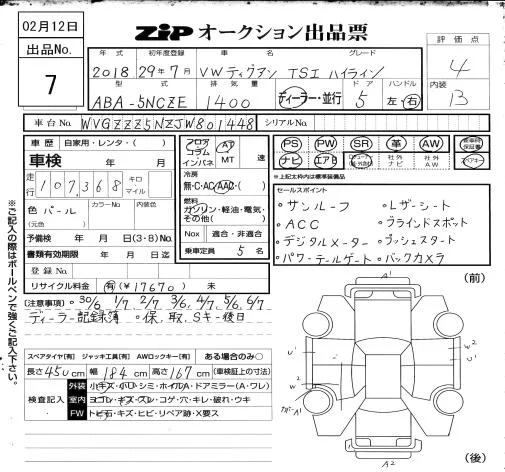 02月12日
出品No.
7
ZiP オークション出品票
年式 初年度登録 車名 グレード
2018 29年7月 VW ティグアン TSI ハイライン
型式 排気量 ドア ハンドル
ABA-5NCZE 1400 ディーラー・並行 5 左・右
評価点
4
内装
B
車台No. WVGZZZ5NZJW801448 シリアルNo.
車歴 自家用・レンタ・( )
車検 年 月
走行 107,368 キロ マイル
色 パール カラーNo 内装色
(元色 )
予備検 年 月 日(3・8)No.
書類有効期限 年 月 日迄
登録No.
リサイクル料金 有(¥17670) 未
フロア コラム インパネ AT MT 速
冷房
無・C・AC・AAC・( )
燃料
ガソリン・軽油・電気・その他( )
Nox 適合・非適合
乗車定員 5 名
PS PW SR 革 AW
ナビ エアB 社外ナビ 社外AW
※上記太枠内は標準装備品
セールスポイント
・サンルーフ ・レザーシート
・ACC ・ブラインドスポット
・デジタルメーター ・プッシュスタート
・パワーテールゲート ・バックカメラ
(注意事項) ・30/6 1/7 2/7 3/6 4/7 5/6 6/7
ディーラー記録簿 ・保、取、Sキー後日
スペアタイヤ[有] ジャッキ工具[有] AWロックキー[有] ある場合のみ○
長さ 450cm 幅 184cm 高さ 167cm (車検証上の寸法)
検査記入
外装 小キズ・小凹・シミ・ホイルA・ドアミラー(A・ワレ)
室内 ヨゴレ・キズ・スレ・コゲ・穴・キレ・破れ・ウキ
FW トビ石・キズ・ヒビ・リペア跡・X要ス
※ご記入の際はボールペンで強くご記入下さい。
(前)
A1
U1
W2
U1
W2
A1
A2
(後)